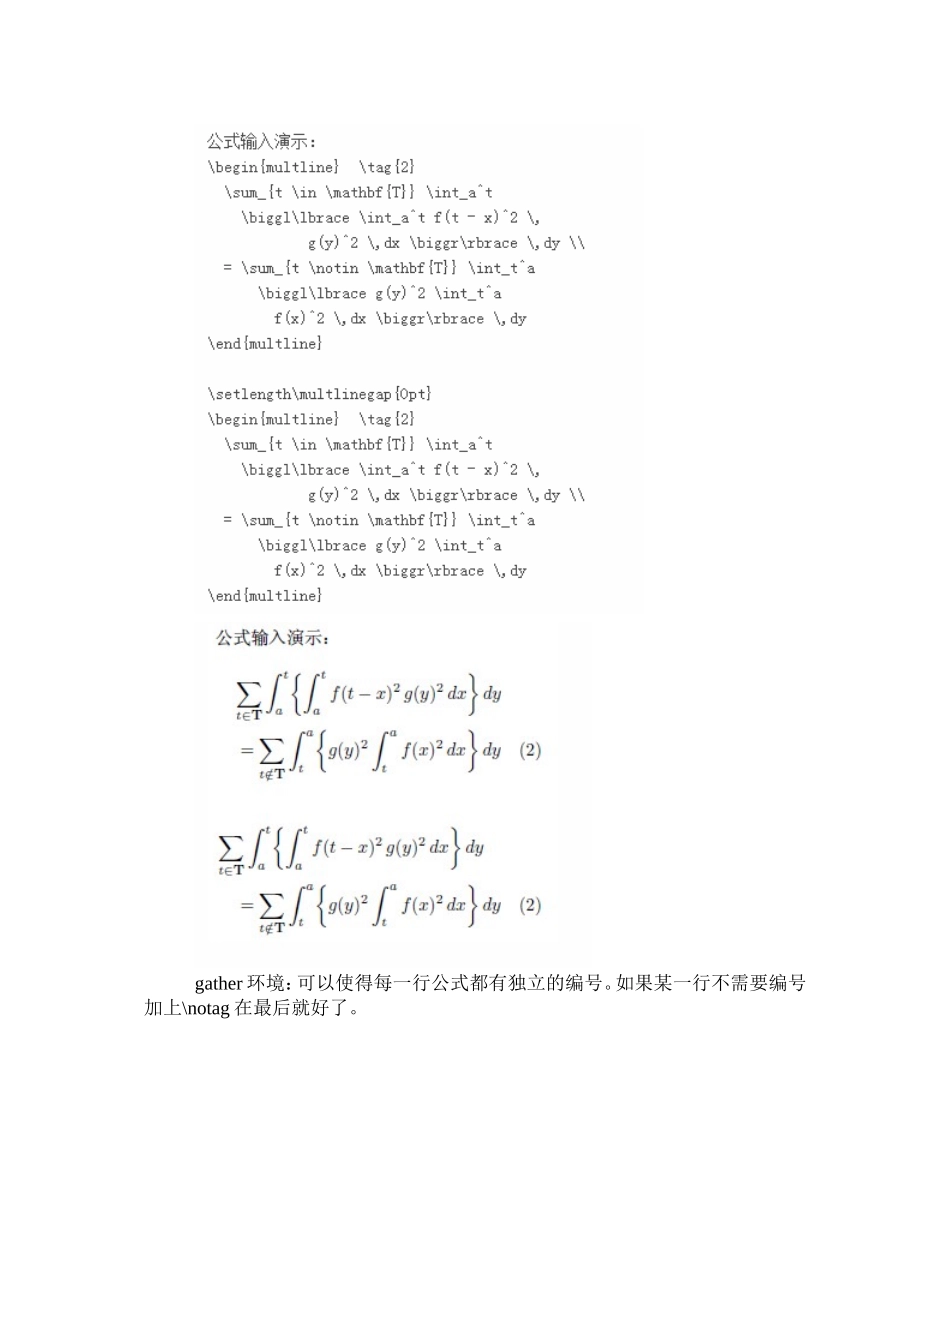 公式输入演示：
\begin{multline}  \tag{2}
  \sum_{t \in \mathbf{T}} \int_a^t
    \biggl\lbrace \int_a^t f(t - x)^2 \,
            g(y)^2 \,dx \biggr\rbrace \,dy \\
  = \sum_{t \notin \mathbf{T}} \int_t^a
      \biggl\lbrace g(y)^2 \int_t^a
        f(x)^2 \,dx \biggr\rbrace \,dy
\end{multline}

\setlength\multlinegap{0pt}
\begin{multline}  \tag{2}
  \sum_{t \in \mathbf{T}} \int_a^t
    \biggl\lbrace \int_a^t f(t - x)^2 \,
            g(y)^2 \,dx \biggr\rbrace \,dy \\
  = \sum_{t \notin \mathbf{T}} \int_t^a
      \biggl\lbrace g(y)^2 \int_t^a
        f(x)^2 \,dx \biggr\rbrace \,dy
\end{multline}
公式输入演示:
∑_{t∈T} ∫_a^t {∫_a^t f(t − x)² g(y)² dx} dy
= ∑_{t∉T} ∫_t^a {g(y)² ∫_t^a f(x)² dx} dy (2)
∑_{t∈T} ∫_a^t {∫_a^t f(t − x)² g(y)² dx} dy
= ∑_{t∉T} ∫_t^a {g(y)² ∫_t^a f(x)² dx} dy (2)
gather 环境：可以使得每一行公式都有独立的编号。如果某一行不需要编号
加上\notag 在最后就好了。